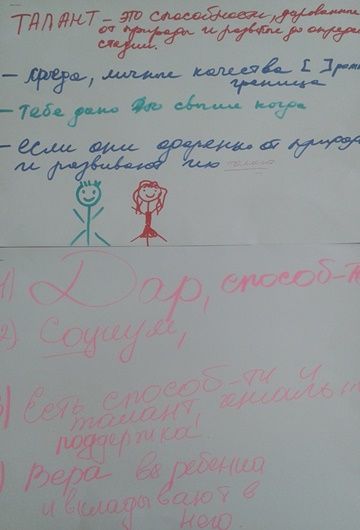 ТАЛАНТ - это способности, дарованные
от природы и развитые до опреде
стадии.
- среда, личные качества [ ]
граница
- Тебе дано свыше когда
- если они одарены от природ
и развивают
талант
1) Дар, способ-т
2) Социум,
Есть способ-ти и
талант,
поддержка!
Вера в ребенка
и вкладывают в
него.